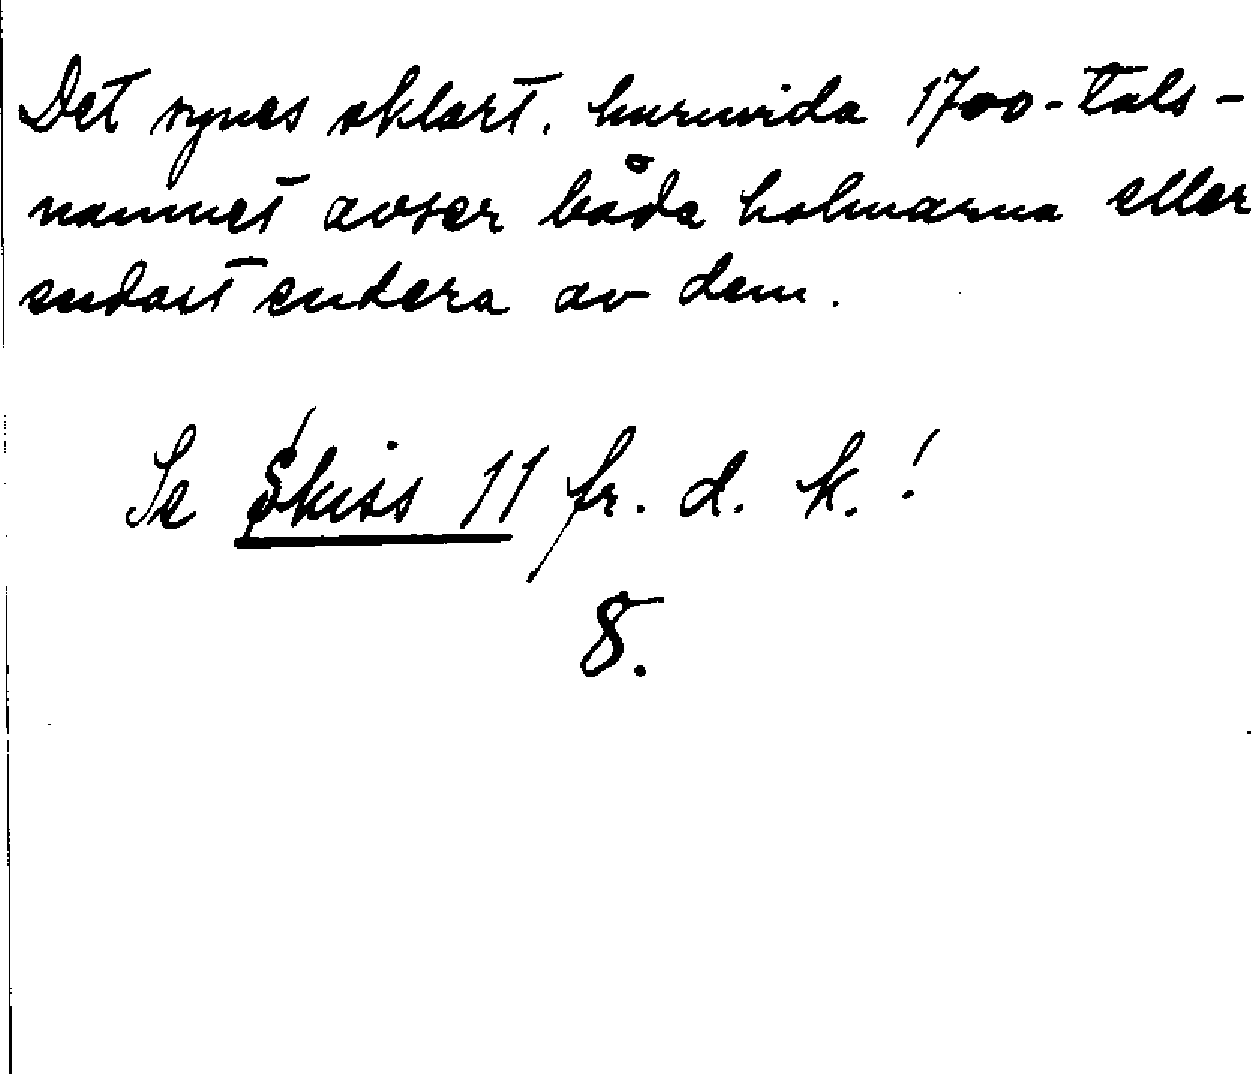 Det synes oklart, huruvida 1700-tals-
namnet avser båda holmarna eller
endast endera av dem.
Se Skiss 11 fr. d. k.!
8.